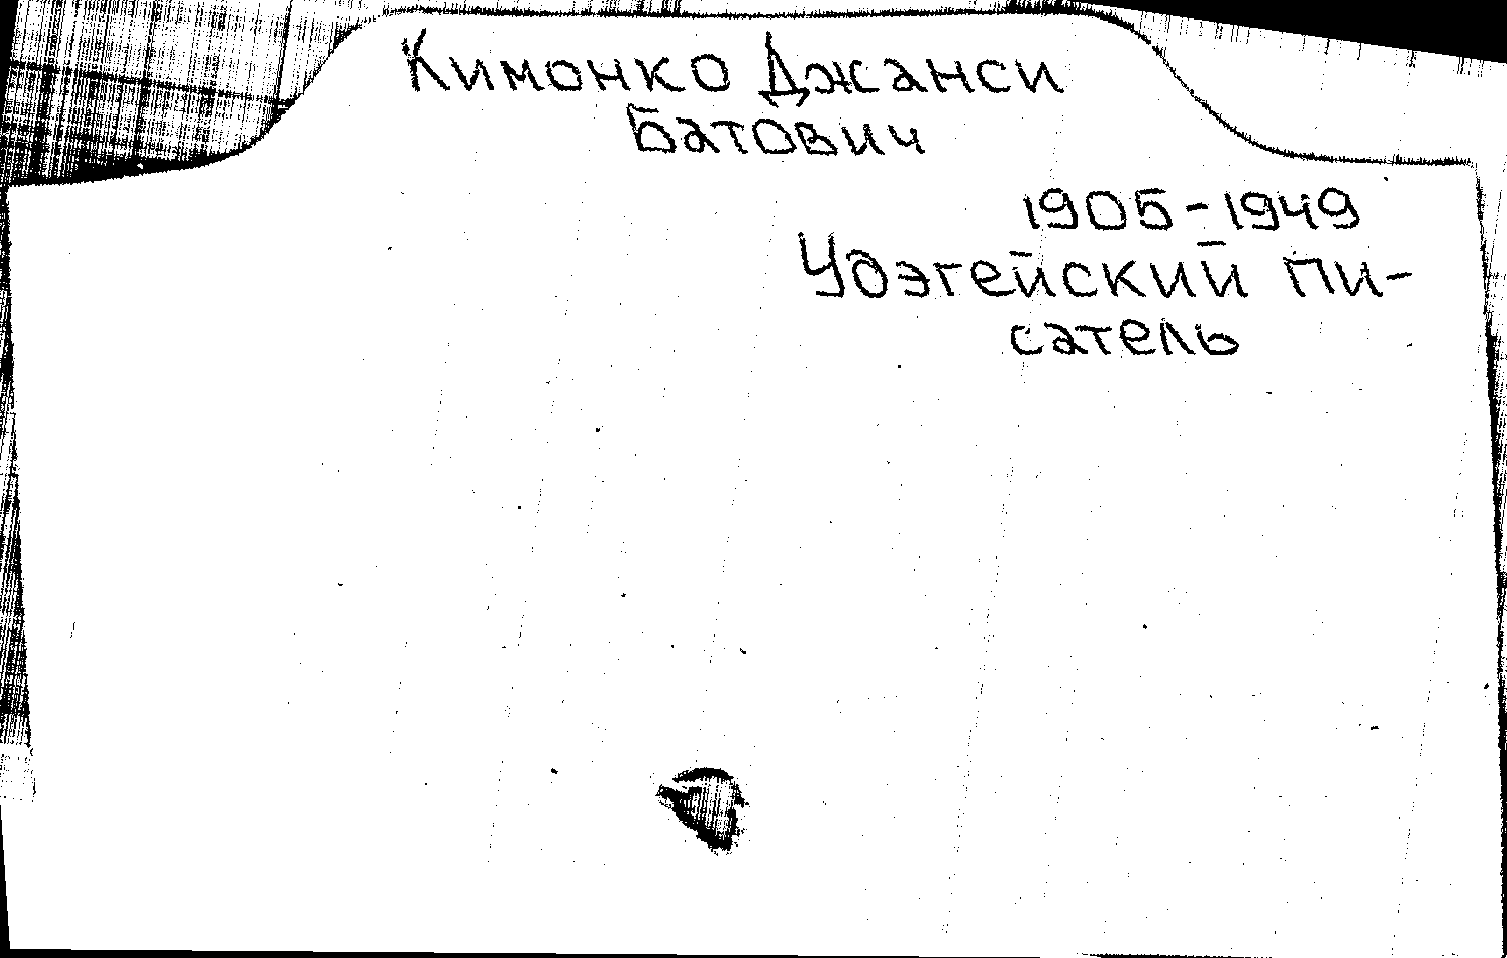 Кимонко Джанси
Батович
1905-1949
Удэгейский пи-
сатель